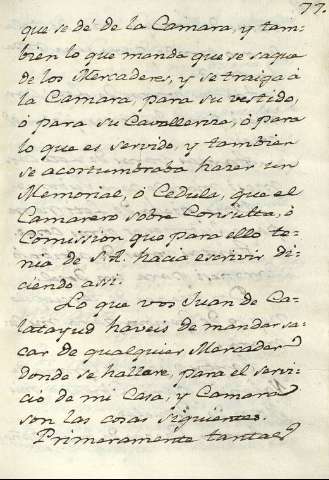 77.
que se dé de la Camara, y tam-
bien lo que manda que se saque
de los Mercaderes, y se traiga á
la Camara, para su vestido,
ó para su Cavalleriza, ó para
lo que es servido, y tambien
se acostumbraba hazer un
Memorial, ó Cedula, que el
Camarero sobre Consulta, ó
Comission que para ello te-
nia de S.A. hacia escrivir di-
ciendo assi.
Lo que vos Juan de Ca-
latayud haveis de mandar sa-
car de qualquier Mercader
donde se hallare, para el servi-
cio de mi Casa, y Camara
son las cosas siguientes.
Primeramente tantas